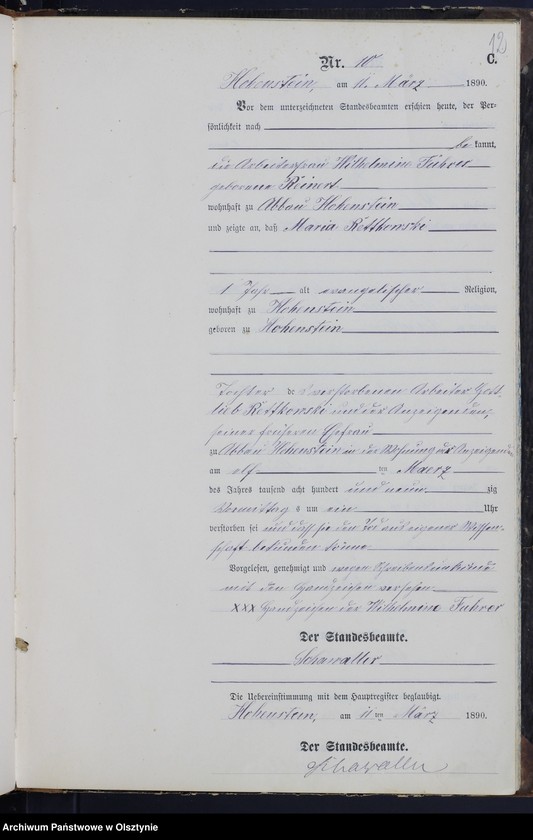 12
C.
Nr. 10
Hohenstein, am 11. März 1890.
Vor dem unterzeichneten Standesbeamten erschien heute, der Per-
sönlichkeit nach
be kannt,
die Arbeiterfrau Wilhelmine Führer
geborene Reinert
wohnhaft zu Abbau Hohenstein
und zeigte an, daß Maria Rettkowski
1 Jahr alt evangelischer Religion,
wohnhaft zu Hohenstein
geboren zu Hohenstein
Tochter des verstorbenen Arbeiter Gott-
lieb Rettkowski und der Anzeigenden,
seiner früheren Ehefrau
zu Abbau Hohenstein in der Wohnung der Anzeigenden
am elf ten Maerz
des Jahres tausend acht hundert und neun zig
Vormittag s um ein Uhr
verstorben sei und daß sie den Tod aus eigener Wissen-
schaft bekunden könne
Vorgelesen, genehmigt und wegen Schreibensunkunde
mit den Handzeichen versehen.
XXX Handzeichen der Wilhelmine Führer
Der Standesbeamte.
Schawaller
Die Uebereinstimmung mit dem Hauptregister beglaubigt.
Hohenstein, am 11 ten März 1890.
Der Standesbeamte.
Schawaller
Archiwum Państwowe w Olsztynie